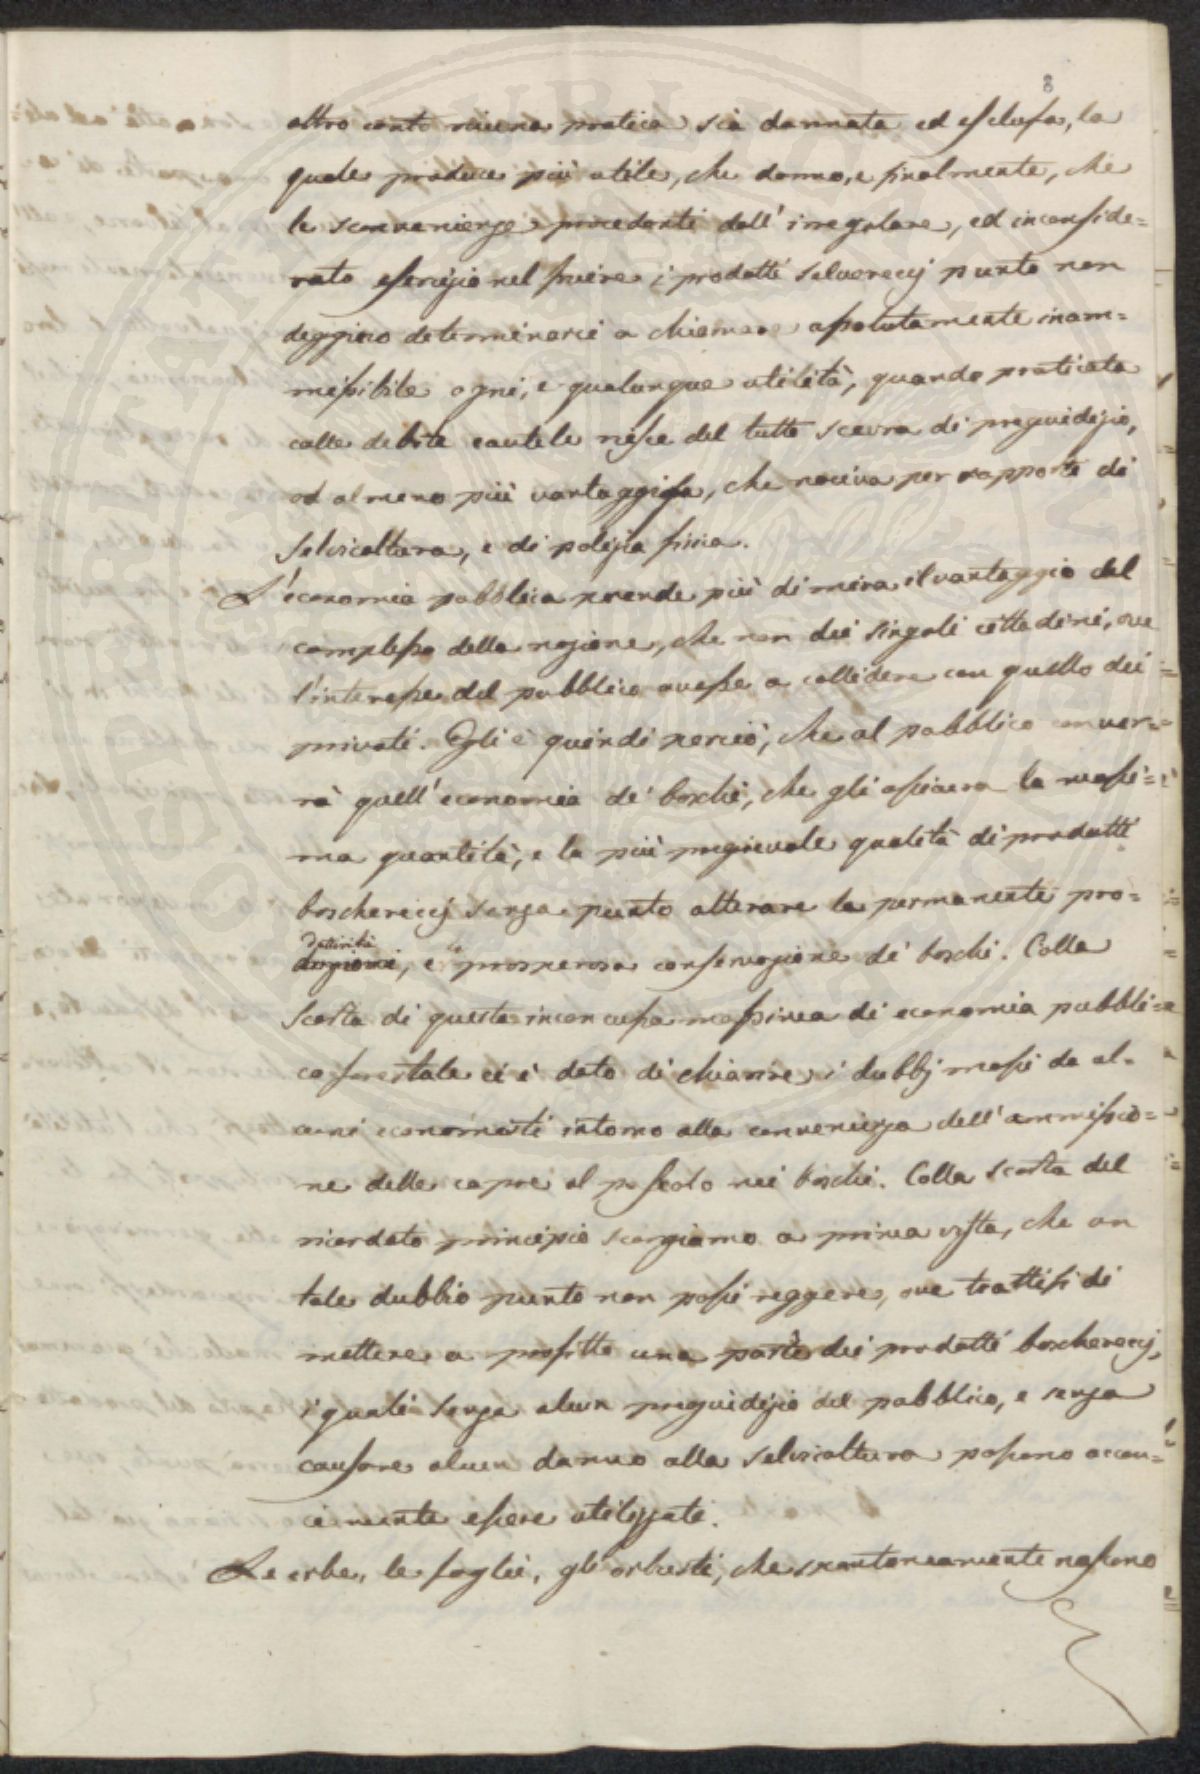 8
altro canto niuna pratica sia dannata ed esclusa, la
quale produce più utile, che danno, e finalmente, che
le sconvenienze procedenti dall' irregolare, ed inconside=
rato esercizio nel fruire i prodotti selvereccj punto non
deggino determinarci a chiamare assolutamente inam=
missibile ogni, e qualunque utilità, quando praticata
colle debite cautele riesce del tutto scevra di pregiudizio,
od almeno più vantaggiosa, che nociva per rapporto di
Selvicoltura, e di polizia fisica.
L'economia pubblica prende più di mira il vantaggio del
complesso della nazione, che non dei singoli cittadini, ove
l'interesse del pubblico avesse a collidere con quello dei
privati. Egli è quindi perciò, che al pubblico conver=
rà quell' economia de' boschi, che gli assicura la massi=
ma quantità, e la più pregievole qualità di prodotti
boschereccj senza punto alterare la permanente pro=
duttività
duzioni, e la prosperosa conservazione de' boschi. Colla
Scorta di questa inconcussa massima di economia pubbli=
co forestale ci è dato di chiarire i dubbj mossi da al=
cuni economisti intorno alla convenienza dell' ammissio=
ne delle capre al pascolo nei boschi. Colla scorta del
ricordato principio scorgiamo a prima vista, che un
tale dubbio punto non possi reggere, ove trattisi di
mettere a profitto una parte dei prodotti boschereccj,
i quali senza alcun pregiudizio del pubblico, e senza
causare alcun danno alla Selvicoltura possono accon=
ciamente essere utilizzati.
Le erbe, le foglie, gli arbusti, che spontaneamente nascono